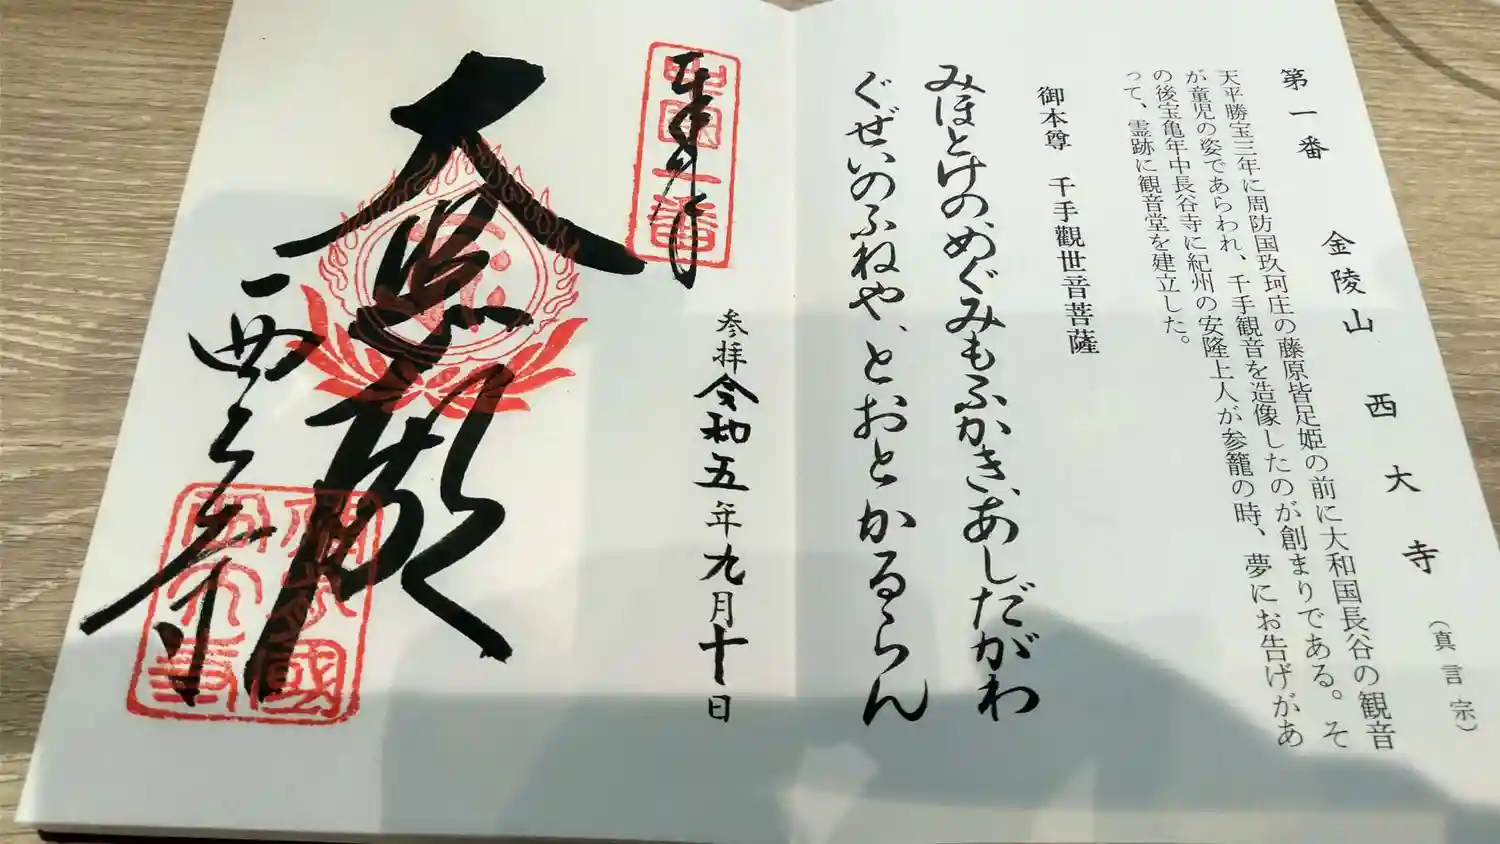 第一番 金陵山 西大寺 (真言宗)
天平勝宝三年に周防国玖珂庄の藤原皆足姫の前に大和国長谷の観音
が童児の姿であらわれ、千手観音を造像したのが創まりである。そ
の後宝亀年中長谷寺に紀州の安隆上人が参籠の時、夢にお告げがあ
って、霊跡に観音堂を建立した。
御本尊 千手觀世音菩薩
みほとけの、めぐみもふかき、あしだがわ
ぐぜいのふねや、とおとかるらん
奉拝
中国一番
参拝令和五年九月十日
大悲殿
西大寺